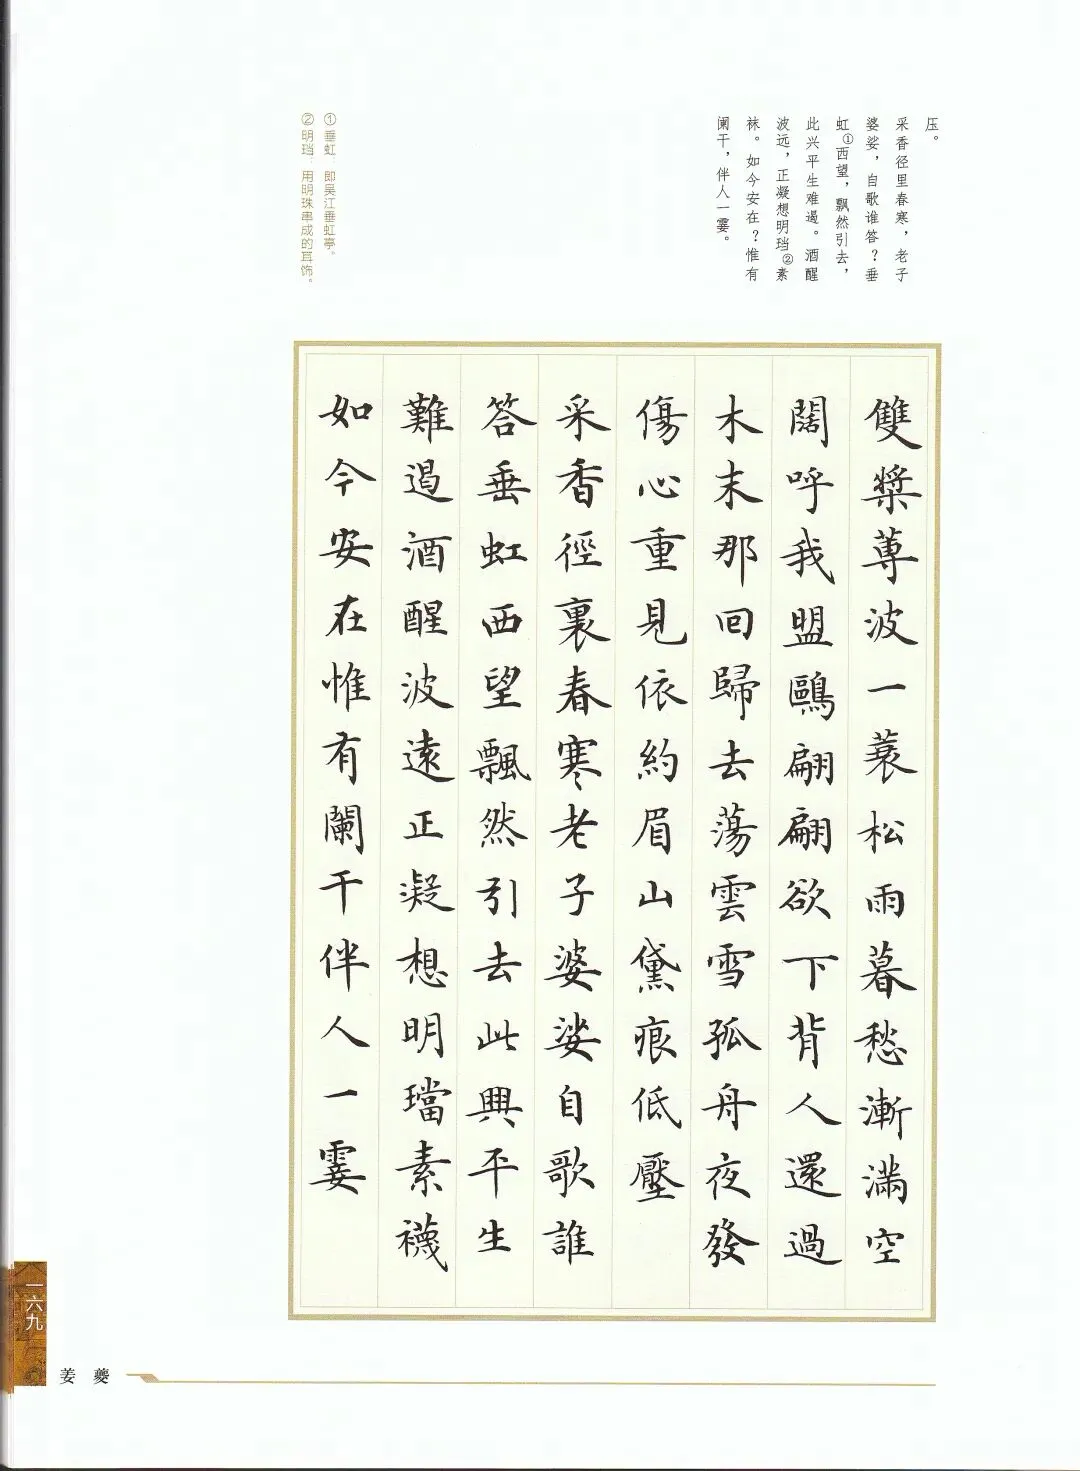 压。
采香径里春寒，老子
婆娑，自歌谁答？垂
虹①西望，飘然引去，
此兴平生难遏。酒醒
波远，正凝想明珰②素
袜。如今安在？惟有
阑干，伴人一霎。
①垂虹：即吴江垂虹亭。
②明珰：用明珠串成的耳饰。
雙槳蓴波一蓑松雨暮愁漸滿空
闊呼我盟鷗翩翩欲下背人還過
木末那回歸去蕩雲雪孤舟夜發
傷心重見依約眉山黛痕低壓
采香徑裏春寒老子婆娑自歌誰
答垂虹西望飄然引去此興平生
難遏酒醒波遠正凝想明璫素襪
如今安在惟有闌干伴人一霎
一六九
姜夔